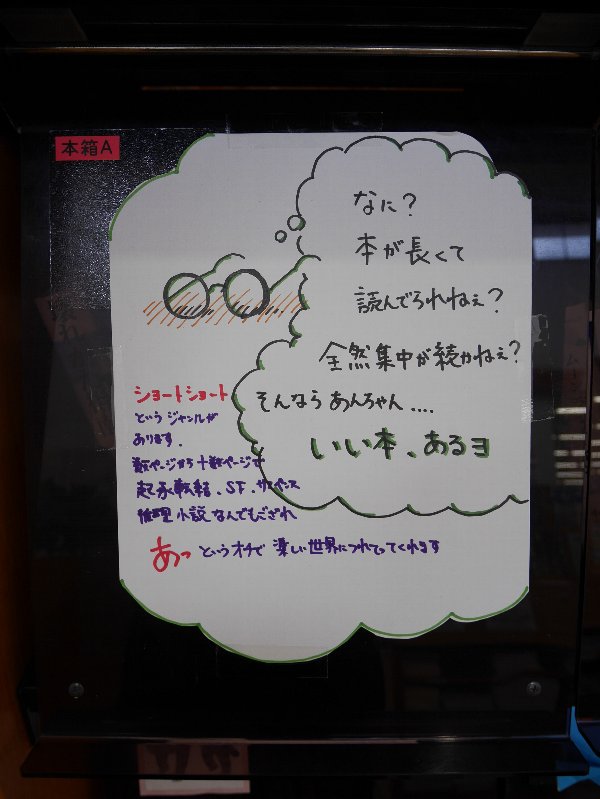 本箱A
なに?
本が長くて
読んでられねぇ?
全然集中が続かねぇ?
そんなら あんちゃん....
いい本、あるヨ
ショートショート
というジャンルが
あります.
数ページから十数ページで
起承転結、SF、サスペンス
推理小説なんでもござれ
あっ というオチで 楽しい世界につれてってくれます